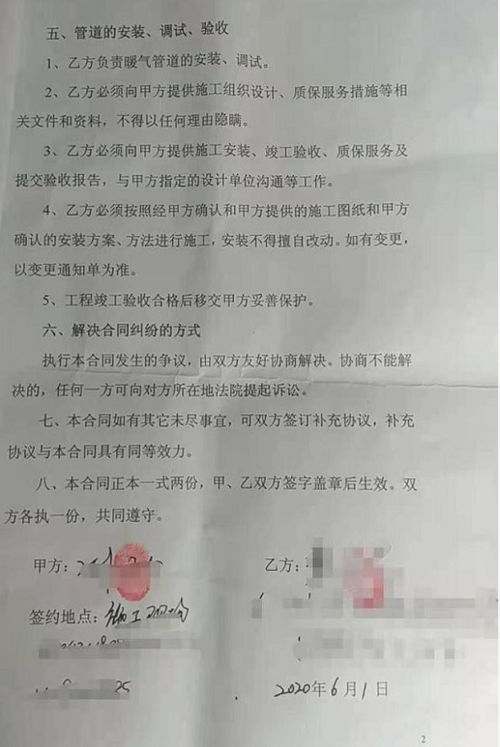 五、管道的安装、调试、验收
1、乙方负责暖气管道的安装、调试。
2、乙方必须向甲方提供施工组织设计、质保服务措施等相
关文件和资料，不得以任何理由隐瞒。
3、乙方必须向甲方提供施工安装、竣工验收、质保服务及
提交验收报告，与甲方指定的设计单位沟通等工作。
4、乙方必须按照经甲方确认和甲方提供的施工图纸和甲方
确认的安装方案、方法进行施工，安装不得擅自改动。如有变更，
以变更通知单为准。
5、工程竣工验收合格后移交甲方妥善保护。
六、解决合同纠纷的方式
执行本合同发生的争议，由双方友好协商解决。协商不能解
决的，任何一方可向对方所在地法院提起诉讼。
七、本合同如有其它未尽事宜，可双方签订补充协议，补充
协议与本合同具有同等效力。
八、本合同正本一式两份，甲、乙双方签字盖章后生效。双
方各执一份，共同遵守。
甲方：
乙方：
签约地点：施工
2020年6月1日
2